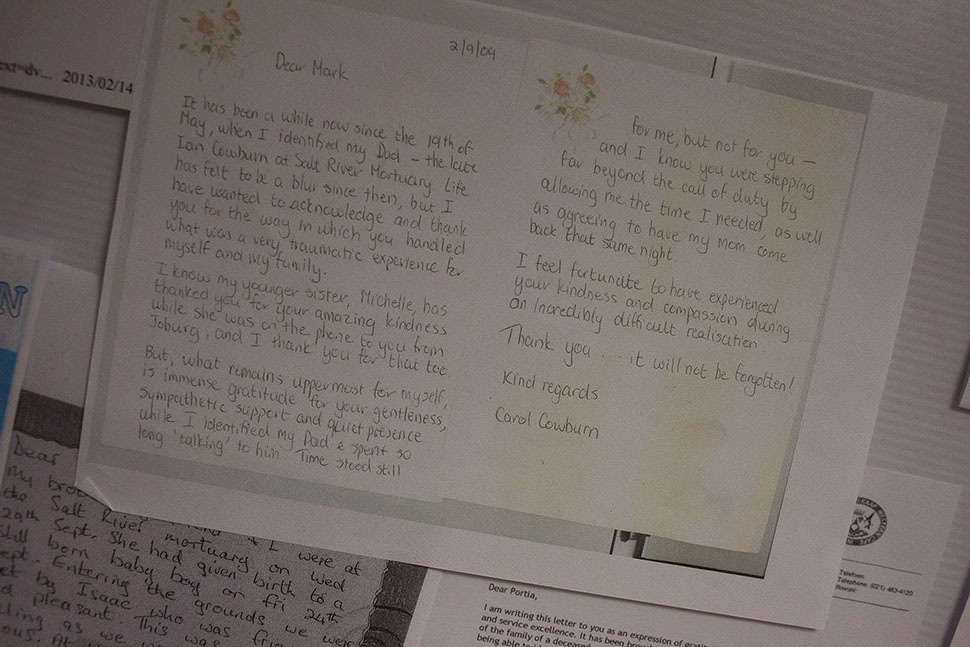 ext=dv... 2013/02/14
2/9/09
Dear Mark
It has been a while now since the 19th of
May, when I identified my Dad – the late
Ian Cowburn at Salt River Mortuary Life
has felt to be a blur since then, but I
have wanted to acknowledge and thank
you for the way in which you handled
what was a very traumatic experience for
myself and my family.
I know my younger sister, Michelle, has
thanked you for your amazing kindness
while she was on the phone to you from
Joburg, and I thank you for that too.
But, what remains uppermost for myself,
is immense gratitude for your gentleness,
sympathetic support and quiet presence
while I identified my Dad & spent so
long 'talking' to him Time stood still
for me, but not for you –
and I know you were stepping
far beyond the call of duty by
allowing me the time I needed, as well
as agreeing to have my mom come
back that same night.
I feel fortunate to have experienced
your kindness and compassion during
an incredibly difficult realisation
Thank you .... it will not be forgotten!
Kind regards
Carol Cowburn
N
Dear
My bro
& L were at
the Salt River mortuary on Wed
29th Sept. She had given birth to a
still born baby boy on fri 24th
ept. Entering the grounds we were
et by Isaac who was frie
d pleasant. This was
ling as we
ous. At
Telefoon:
Telephone: (021) 483-4120
Ifowuni:
Dear Portia,
I am writing this letter to you as an expression of grati
and service excellence. It has been brou
of the family of a deceased
being able to